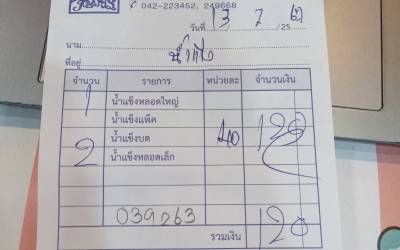 ✆ 042-223452, 249668
วันที่ 13 / 7 / 2567
นาม
ที่อยู่
จำนวน รายการ หน่วยละ จำนวนเงิน
1 น้ำแข็งหลอดใหญ่
น้ำแข็งแพ็ค
น้ำแข็งบด 40 120
2 น้ำแข็งหลอดเล็ก
039263 รวมเงิน 120